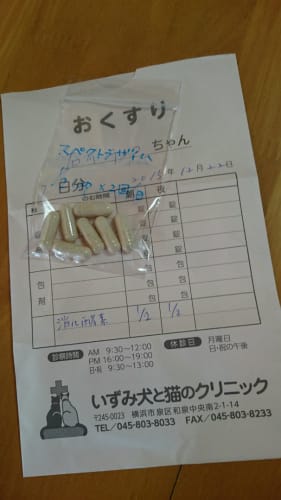 おくすり
ちゃん
2015年12月22日
日分
の む時間 朝 夜
錠 錠
錠 錠
錠
包 包
包 包
剤
消化酵素 1/2 1/2
診察時間 AM 9:30~12:00 休診日 月曜日
PM 16:00~19:00 日・祝の午後
日・祝 9:30~13:00
いずみ犬と猫のクリニック
〒245-0023 横浜市泉区和泉中央南2-1-14
TEL/045-803-8033 FAX/045-803-8233